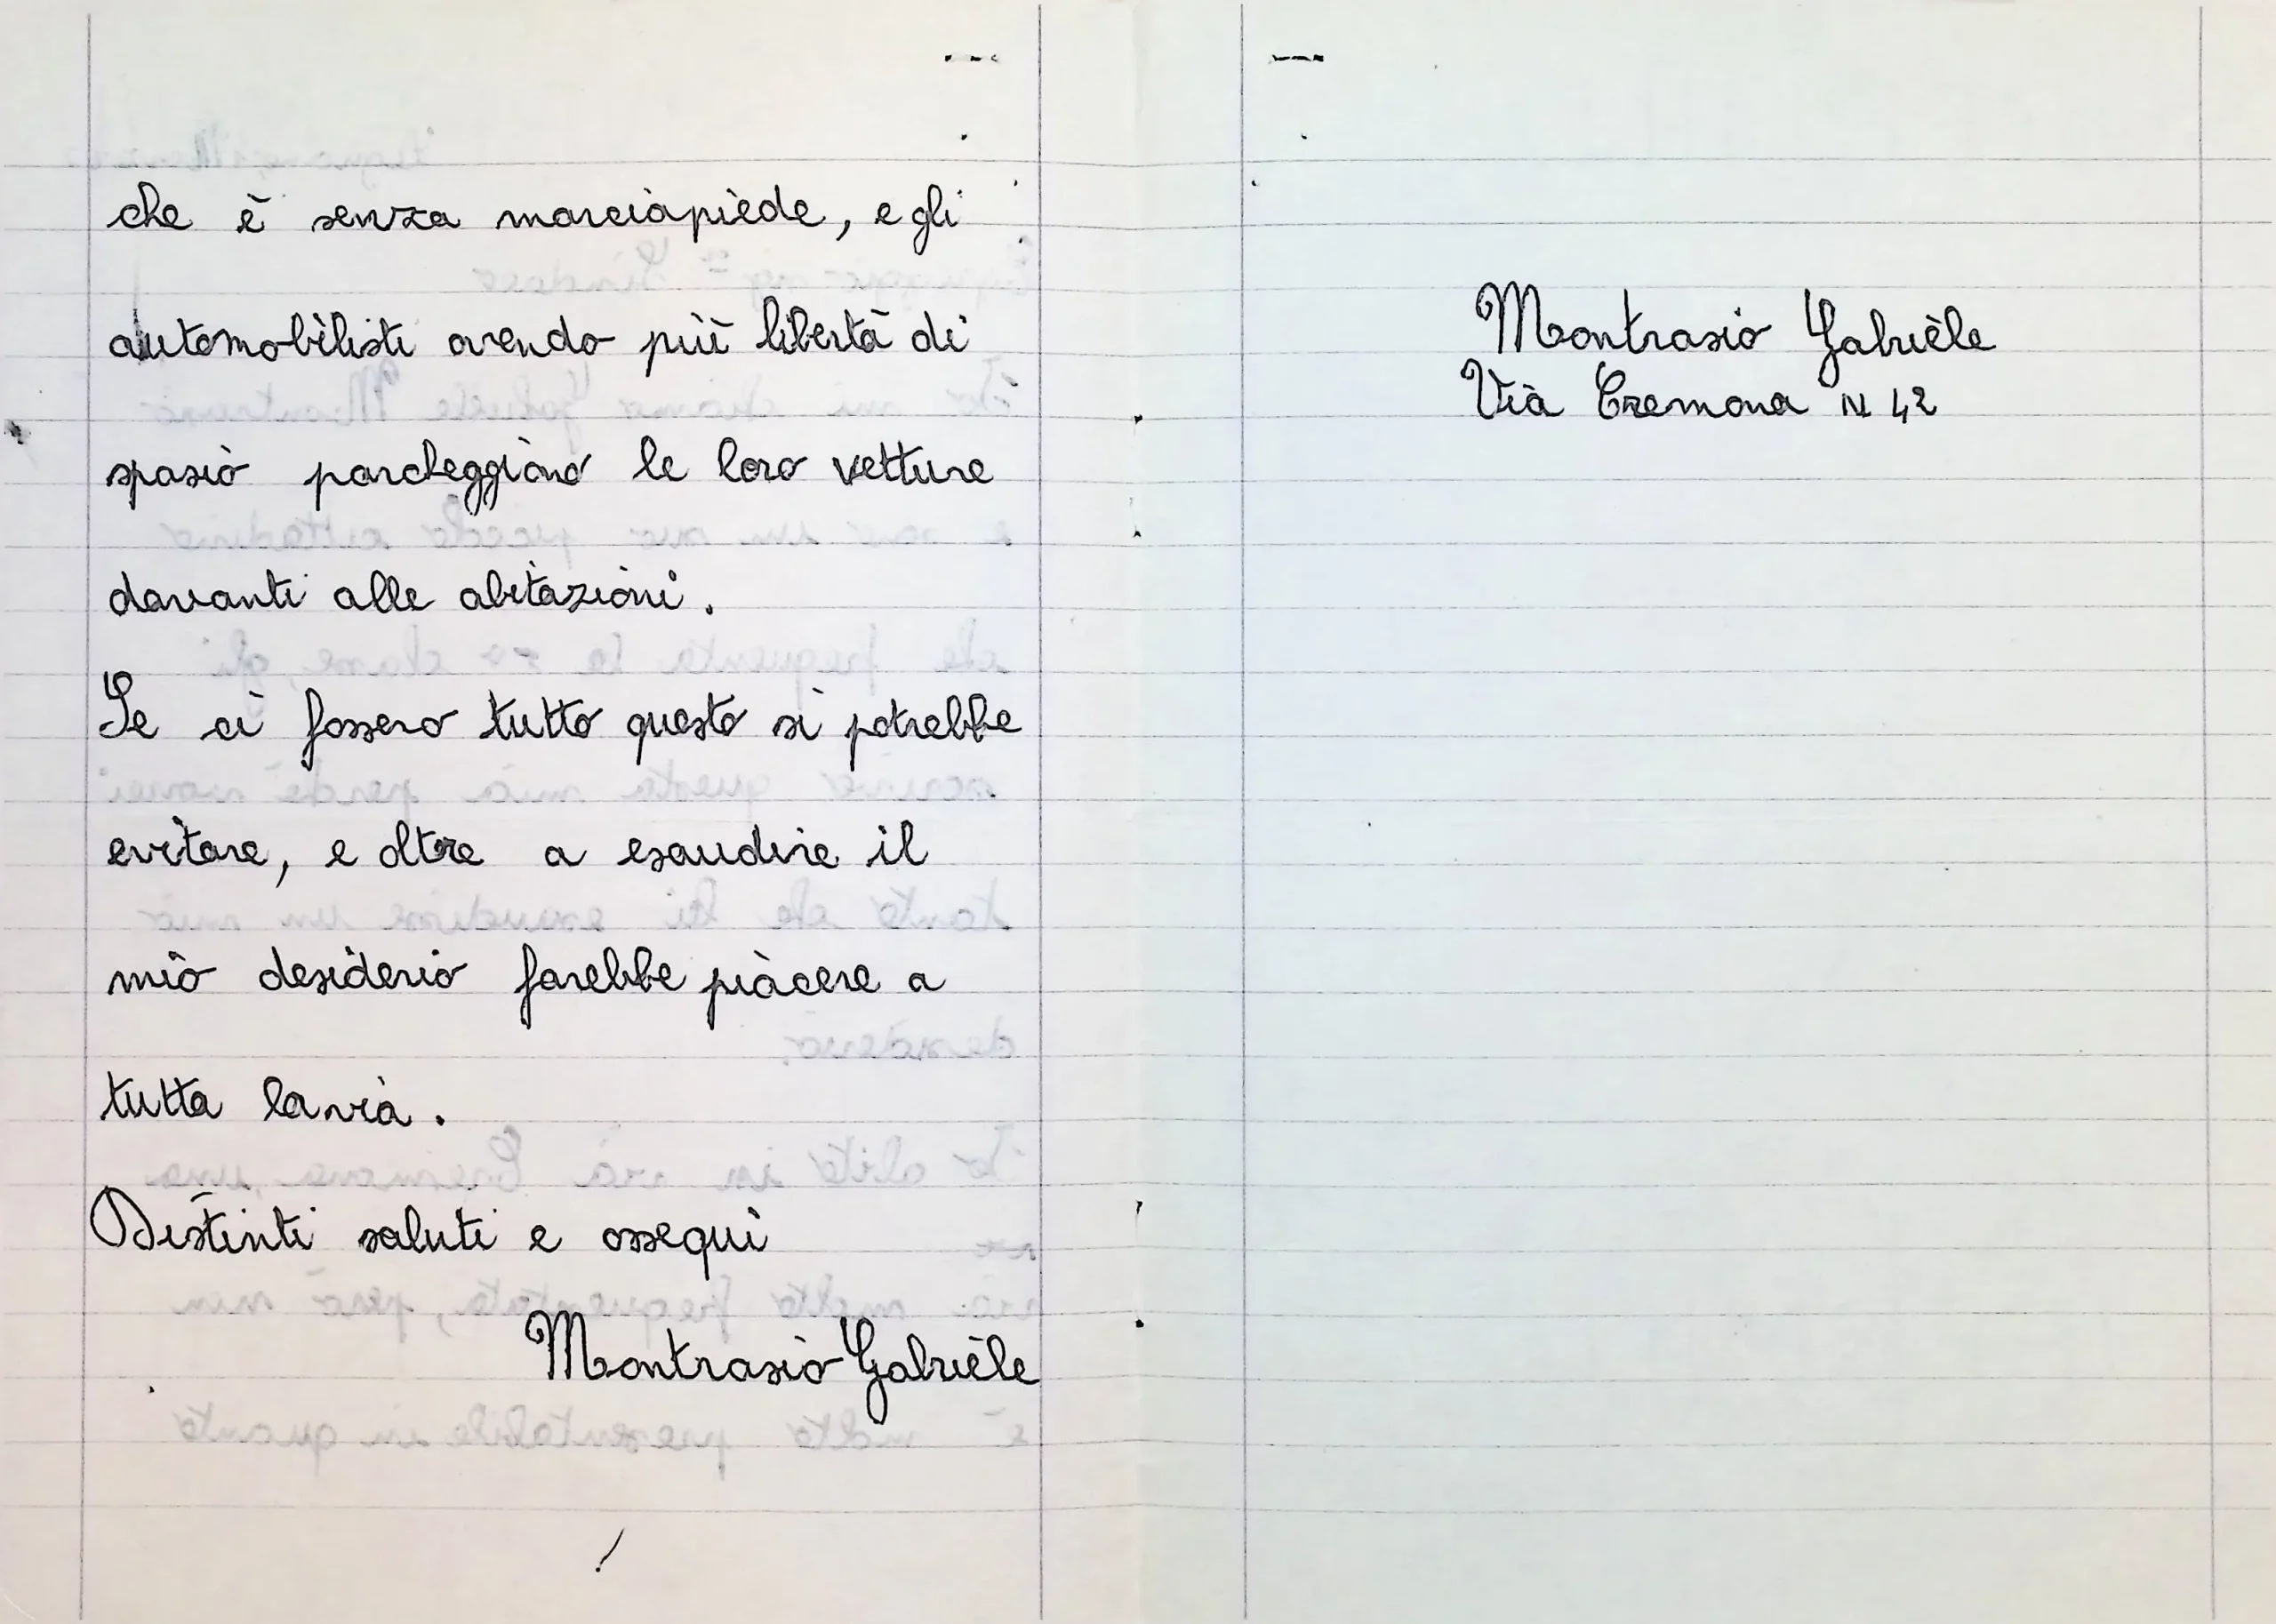 che è senza marciapiede, e gli
automobilisti avendo più libertà di
spasio parcheggiano le loro vetture
davanti alle abitazioni.
Se ci fossero tutto questo si potrebbe
evitare, e oltre a esaudire il
mio desiderio farebbe piacere a
tutta la via.
Distinti saluti e ossequi
Montrasio Gabriele
Montrasio Gabriele
Via Cremona N 42